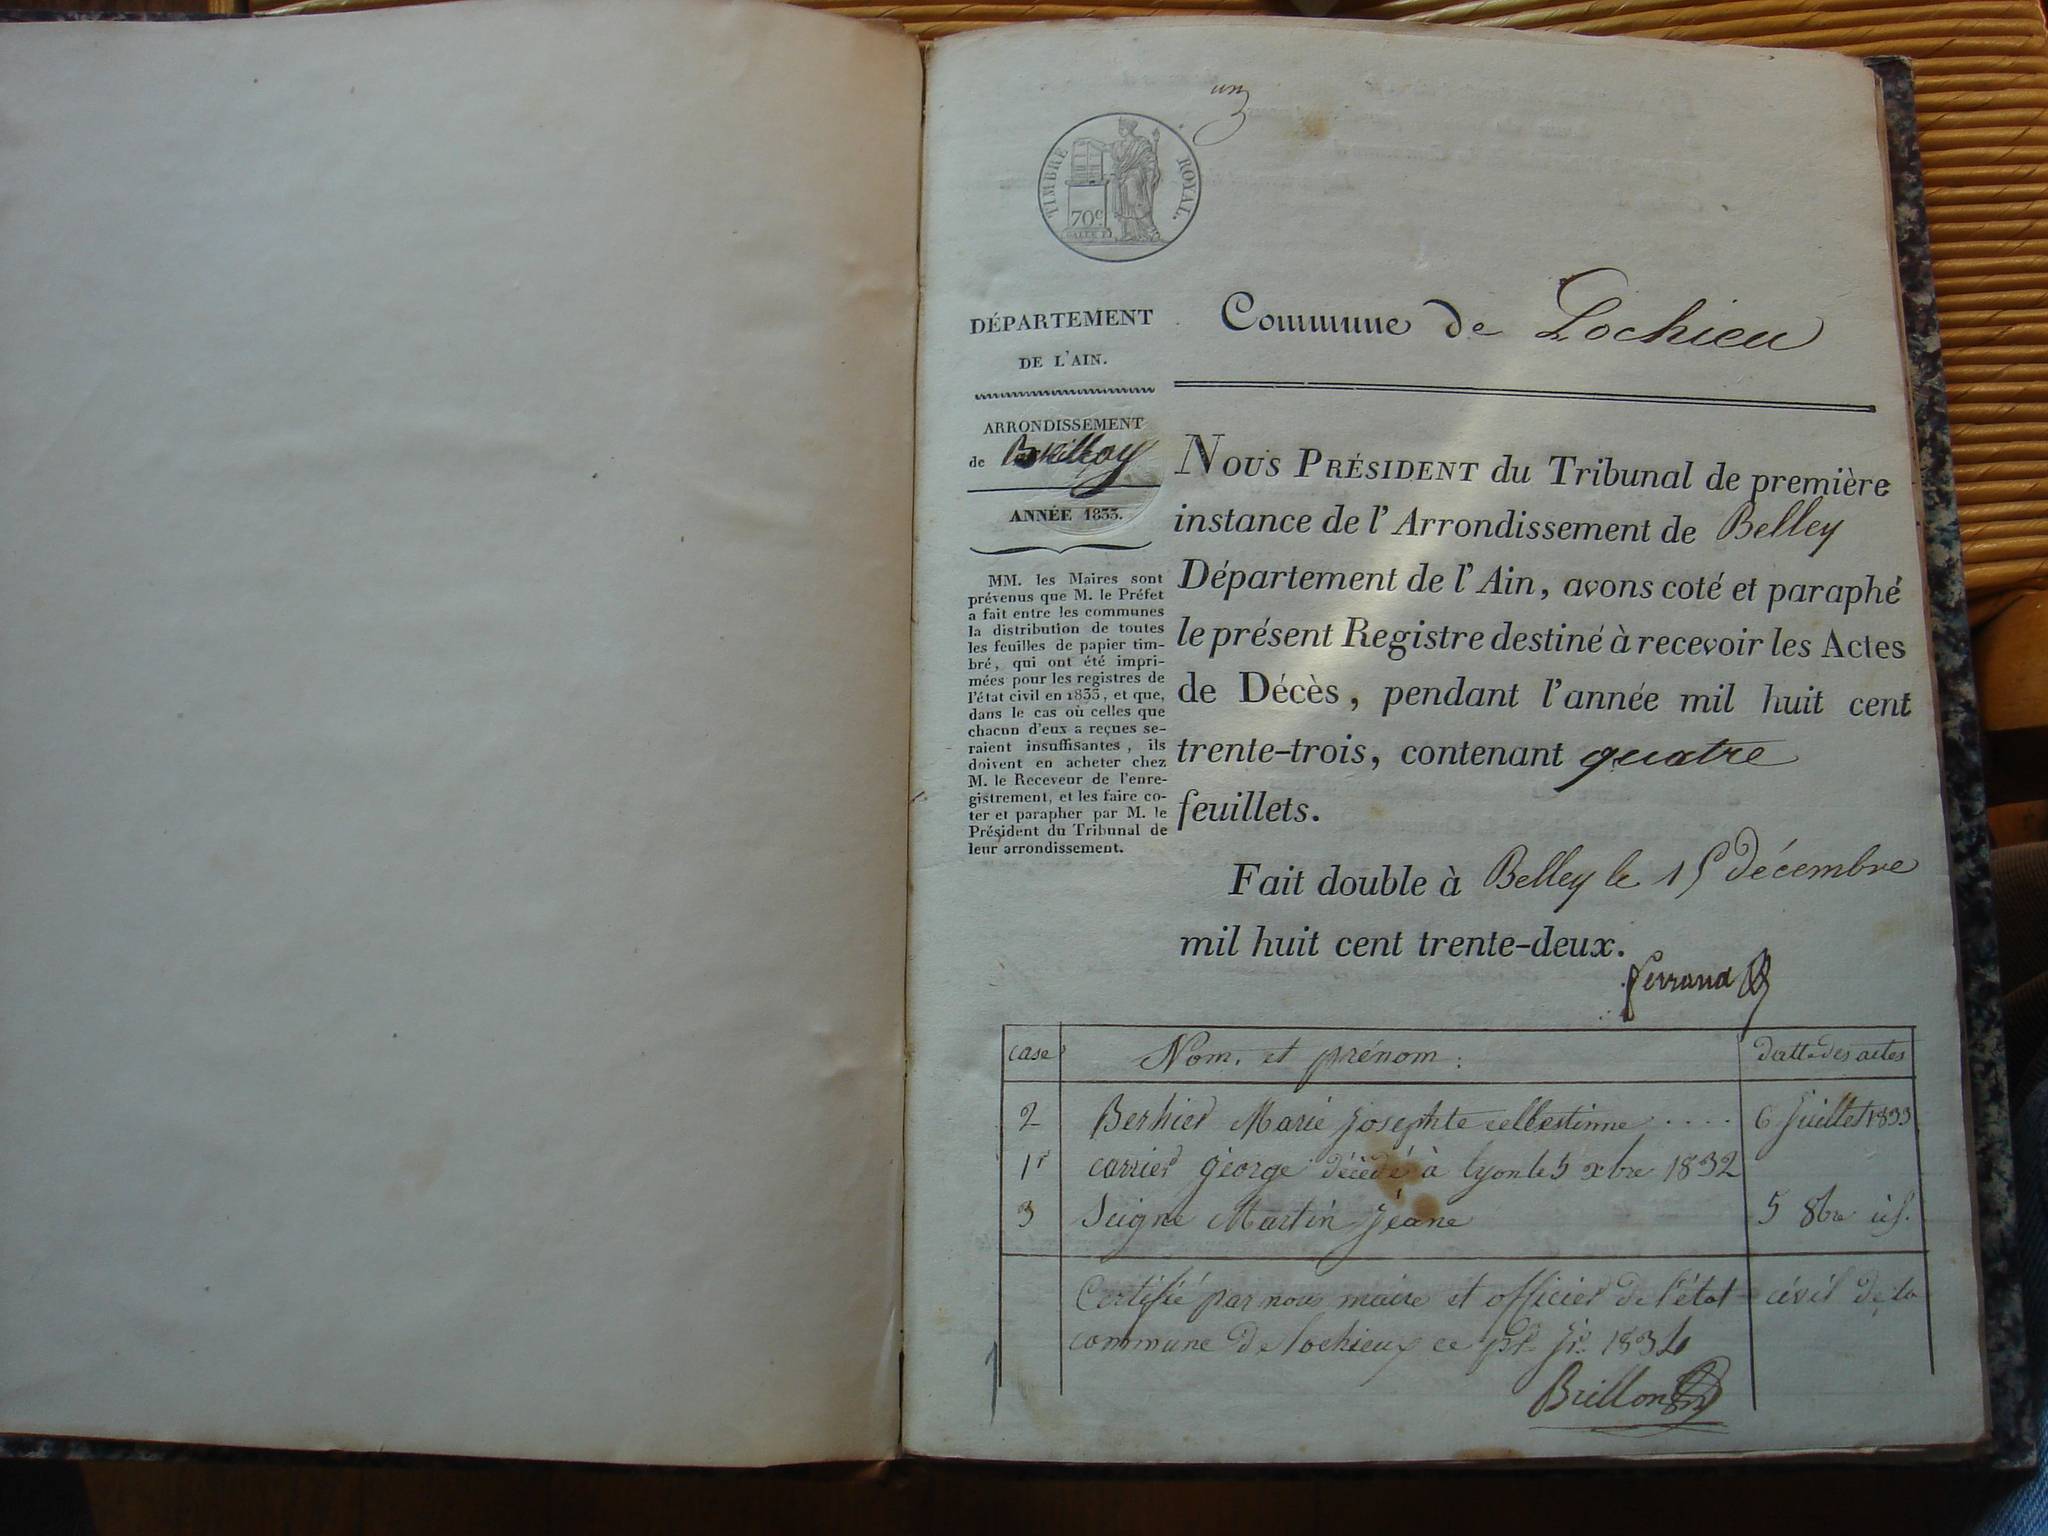 un
TIMBRE ROYAL.
70c
Commune de Lochieu
DÉPARTEMENT
DE L'AIN.
ARRONDISSEMENT
de Belley
ANNÉE 1833.
MM. les Maires sont
prévenus que M. le Préfet
a fait entre les communes
la distribution de toutes
les feuilles de papier tim-
bré, qui ont été impri-
mées pour les registres de
l'état civil en 1833, et que,
dans le cas où celles que
chacun d'eux a reçues se-
raient insuffisantes, ils
doivent en acheter chez
M. le Receveur de l'enre-
gistrement, et les faire co-
ter et parapher par M. le
Président du Tribunal de
leur arrondissement.
NOUS PRÉSIDENT du Tribunal de première
instance de l'Arrondissement de Belley
Département de l'Ain, avons coté et paraphé
le présent Registre destiné à recevoir les Actes
de Décès, pendant l'année mil huit cent
trente-trois, contenant quatre
feuillets.
Fait double à Belley le 15 décembre
mil huit cent trente-deux.
Ferrand
case Nom, et prénom: datte des actes
2 Berhier Marie Josephte cellestinne .... 6 Juillet 1833
1r carrier George décédé à lyon le 5 xbre 1832
3 Seigne Martin Jéane 5 8bre
Certifié par nous maire et officier de l'état civil de la
commune de lochieux ce pr. Jr. 1834
Brillon